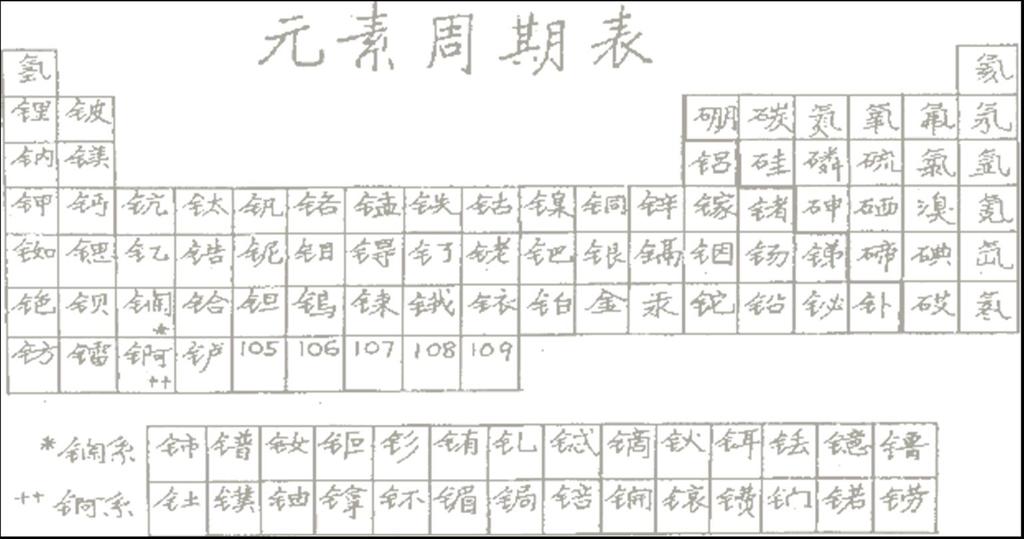 元素周期表
氢 氦
锂 铍 硼 碳 氮 氧 氟 氖
钠 镁 铝 硅 磷 硫 氯 氩
钾 钙 钪 钛 钒 铬 锰 铁 钴 镍 铜 锌 镓 锗 砷 硒 溴 氪
铷 锶 钇 锆 铌 钼 锝 钌 铑 钯 银 镉 铟 锡 锑 碲 碘 氙
铯 钡 镧* 铪 钽 钨 铼 锇 铱 铂 金 汞 铊 铅 铋 钋 砹 氡
钫 镭 锕++ 𬬻 105 106 107 108 109
* 镧系 铈 镨 钕 钷 钐 铕 钆 铽 镝 钬 铒 铥 镱 镥
++ 锕系 钍 镤 铀 镎 钚 镅 锔 锫 锎 锿 镄 钔 锘 铹